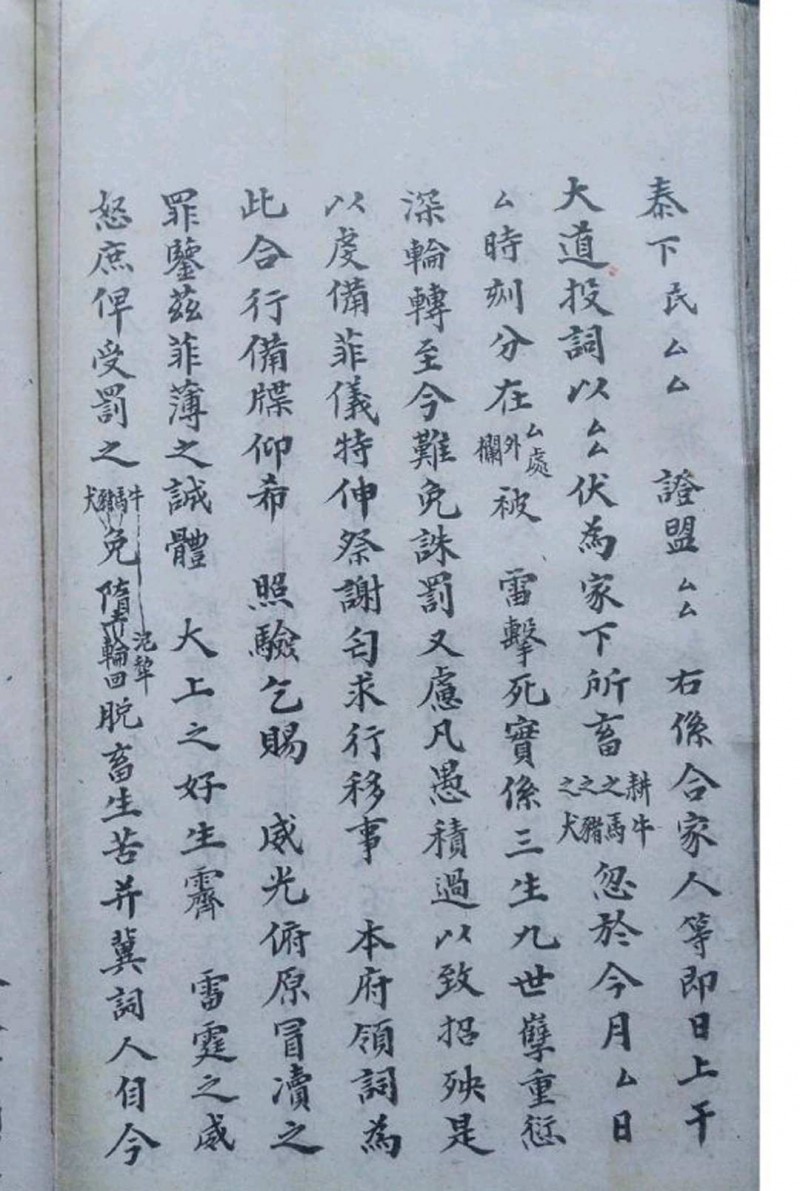 泰下民厶厶　證盟厶厶　右係合家人等即日上干
大道投詞以厶厶伏為家下所畜耕牛之馬之豬之犬忽於今月厶日
厶時刻分在厶處外欄被　雷擊死實係三生九世孽重愆
深輪轉至今難免誅罰又慮凡愚積過以致招殃是
以虔備菲儀特伸祭謝匄求行移事　本府領詞為
此合行備牒仰希　照驗乞賜　威光俯原冒瀆之
罪鑒茲菲薄之誠體　大上之好生霽　雷霆之威
怒庶俾受罰之牛馬豬犬免泥犂隋輪回脫畜生苦并冀詞人自今